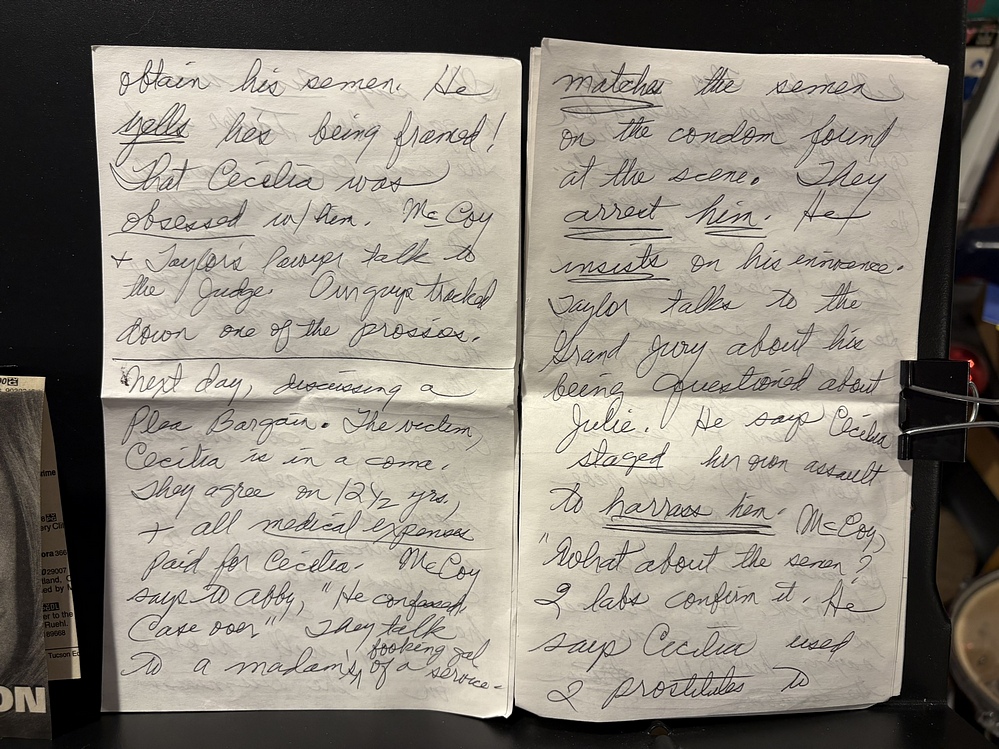 obtain his semen. He
yells he's being framed!
That Cecilia was
obsessed w/ him. McCoy
+ Taylor's lawyer talk to
the Judge. Our guys tracked
down one of the prossos.
Next day, discissing a
Plea Bargain. The victim,
Cecilia is in a coma.
They agree on 12½ yrs.,
+ all medical expenses
paid for Cecilia. McCoy
says to Abby, "He confessed,
Case over" They talk
to a madam, booking gal
of a service.
matches the semen
on the condom found
at the scene. They
arrest him. He
insists on his innocence.
Taylor talks to the
Grand Jury about his
being questioned about
Julie. He says Cecilia
staged her own assault
to harrass him. McCoy,
"What about the semen?
2 labs confirm it. He
says Cecilia used
2 prostitutes to
ON
Ruehl.
Tucson Ed